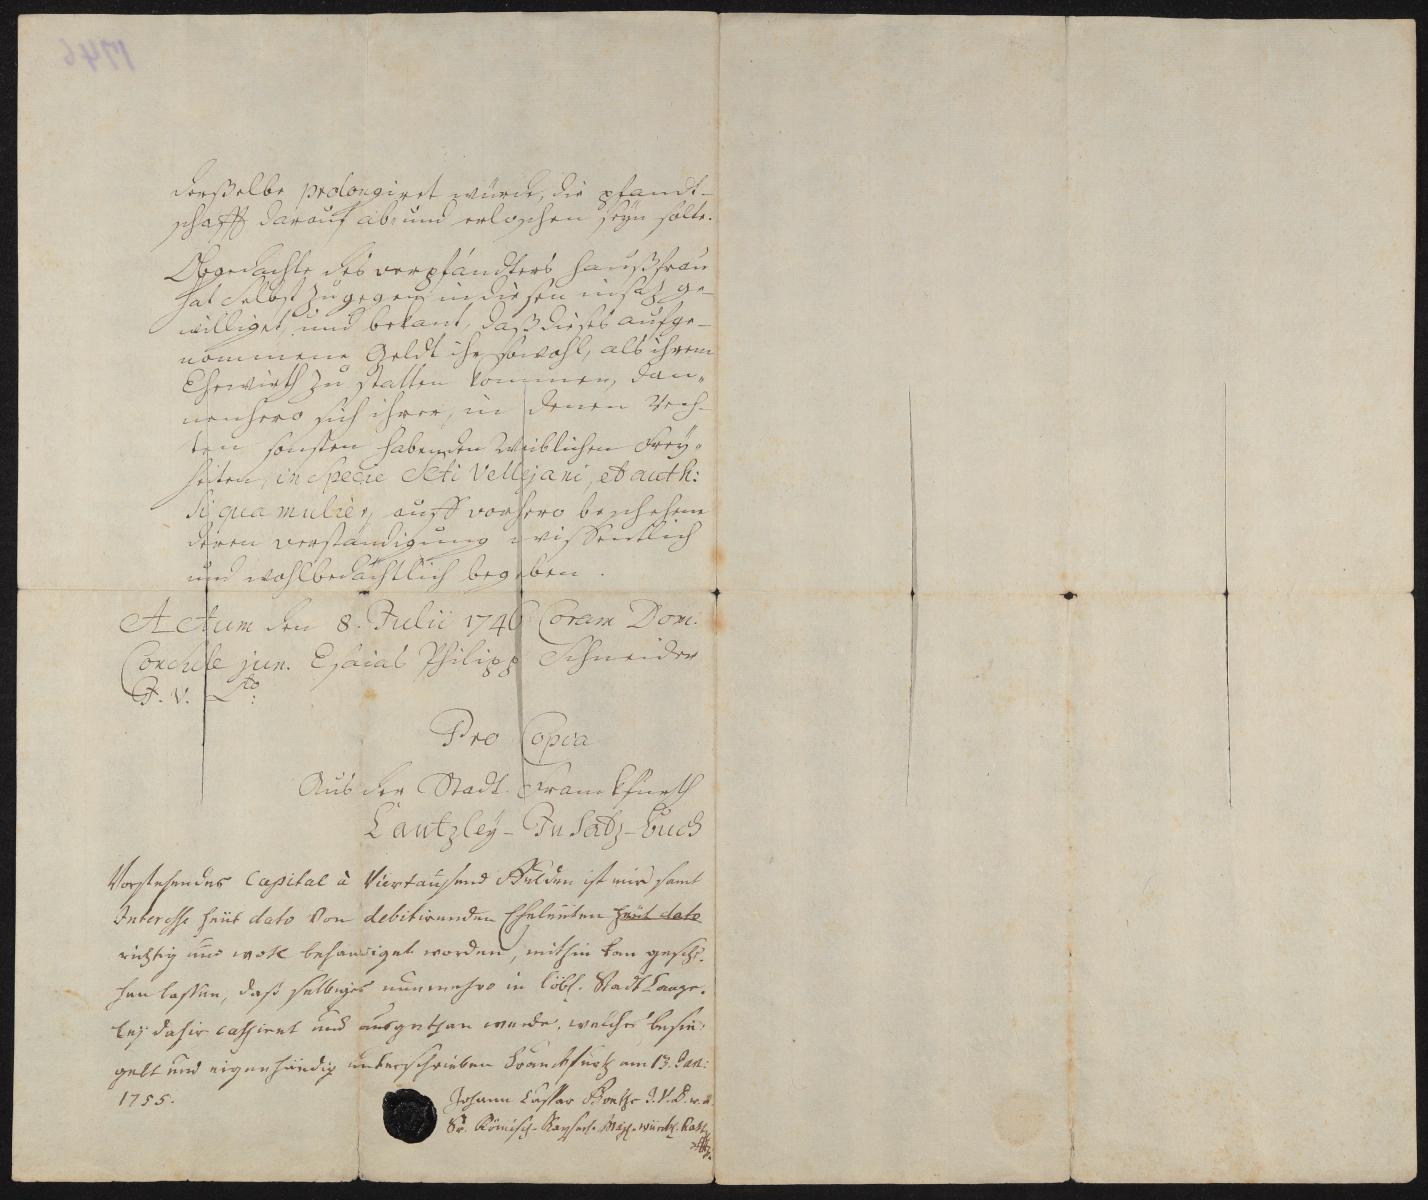 1746
derselbe prolongiret würde, die pfandt-
schafft darauf ab: und erloschen seyn solte.
Obgedachte des verpfändters haußfrau
hat selbst zugegen in diesen insatz ge-
williget, und bekant, daß dieses aufge-
nommene Geldt ihr sowohl, als ihrem
Ehewirth zu statten kommen, dan-
nenhero sich ihrer, in denen Rech-
ten sonsten habenden Weiblichen Frey-
heiten, in specie Scti Vellejani, et auth:
si qua mulier, auff vorhero beschehene
deren verständigung wissentlich
und wohlbedächtlich begeben.
Actum den 8. Julii 1746 Coram Dom.
Consule jun. Esaias Philipp Schneider
J. V. Lto:
Pro Copia
Aus der Stadt Franckfurth
Cantzley-Insatz-Buch
Vorstehendes Capital à Viertausend Gulden ist mir samt
Interesse heut dato von debitirenden Eheleuten heut dato
richtig und wohl behändiget worden, mithin kan gesche-
hen lassen, daß selbiges nunmehro in löbl. Stadt Cantze-
ley dahier cassiret und ausgethan werde, welches besie-
gelt und eigenhändig unterschrieben Franckfurth am 13. Jan:
1755.
Johann Caspar Goethe J.V.D.
Sr. Römisch-Kayserl. Majt. würckl. Rath